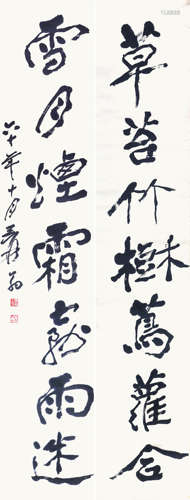 草苔竹樹蔦蘿合
雪月煙霜霧雨迷
六十年十月爰翁